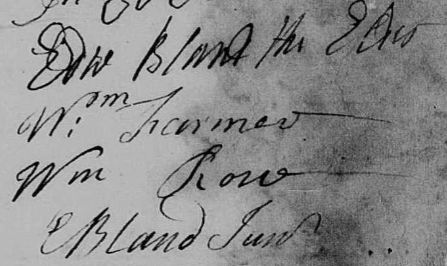 Edw Bland the Elder
Wm Farmer
Wm Rowe
E Bland Junr